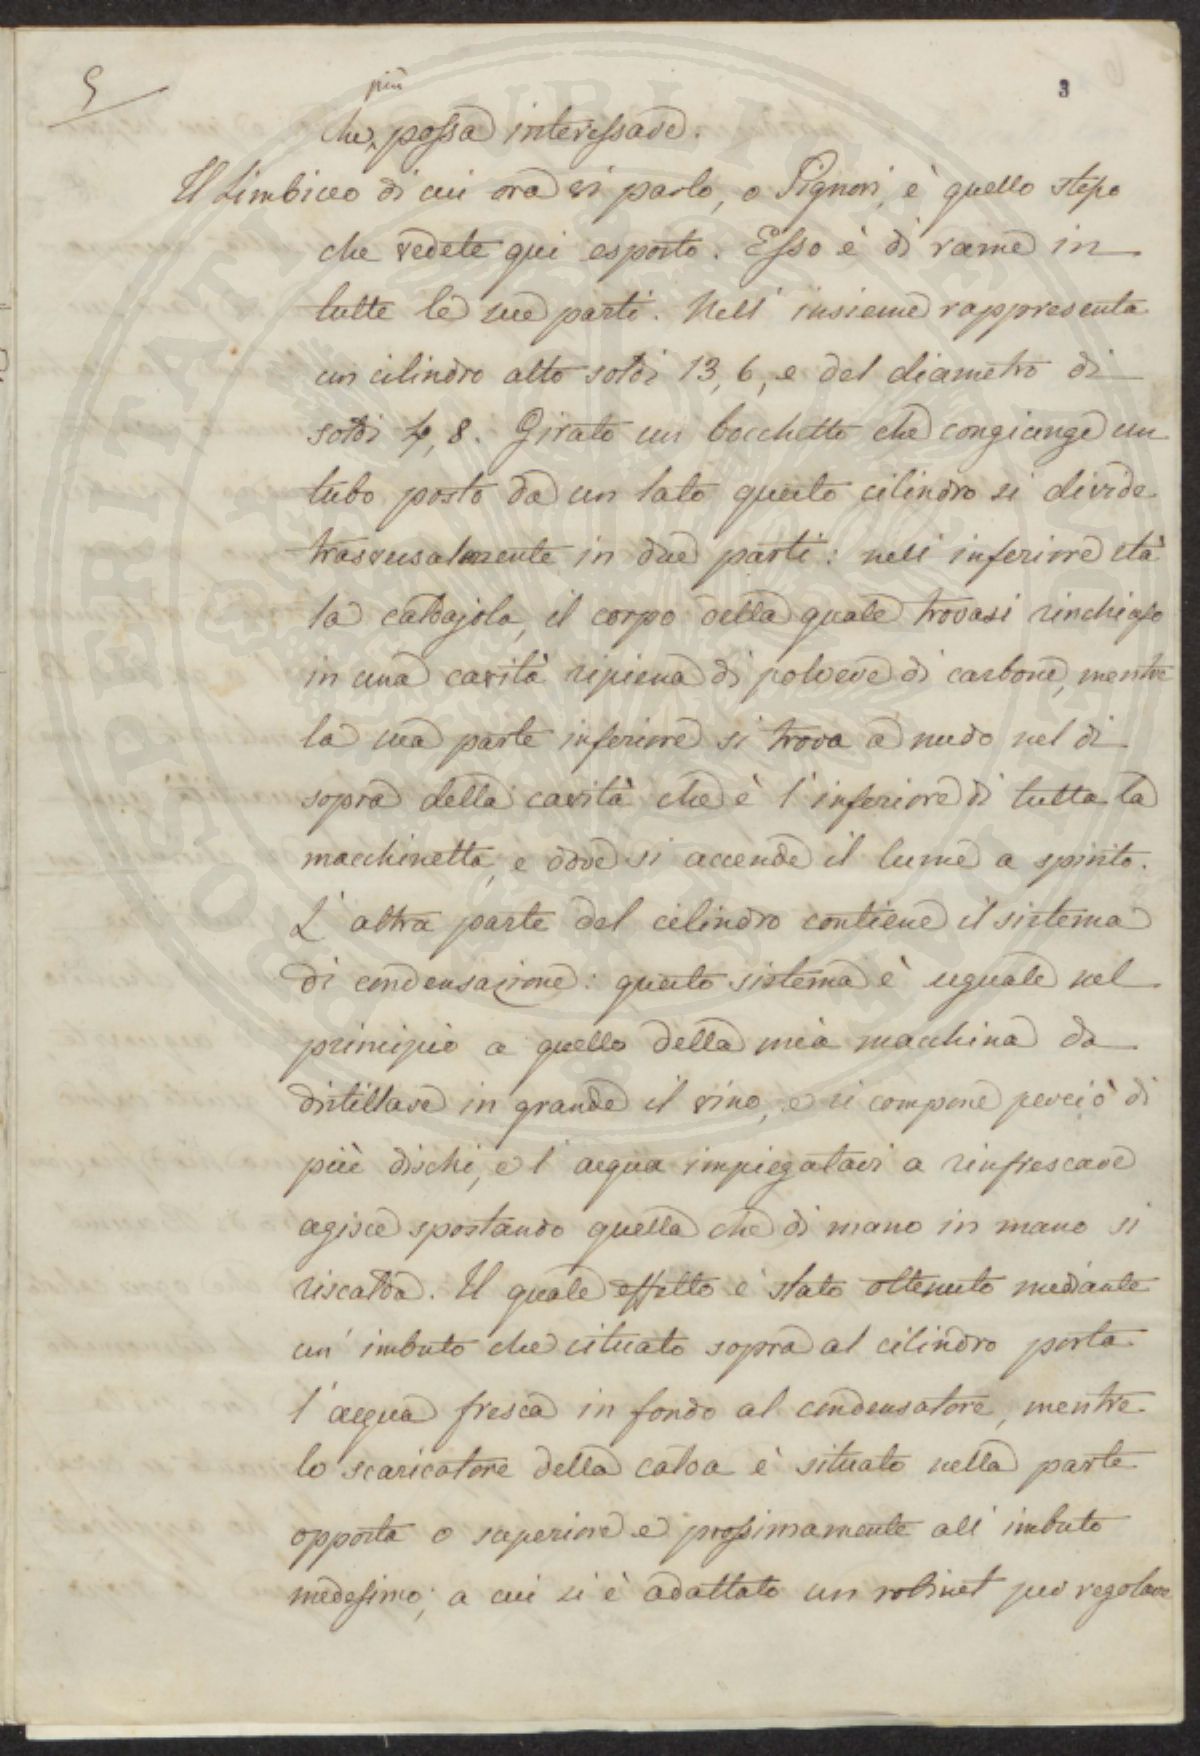 5
3
più
che possa interessare.
Il Limbicco di cui ora vi parlo, o Signori, è quello stesso
che vedete qui esposto. Esso è di rame in
tutte le sue parti. Nell' insieme rappresenta
un cilindro alto soldi 13, 6, e del diametro di
soldi 4, 8. Girato un bocchetto che congiunge un
tubo posto da un lato questo cilindro si divide
trasversalmente in due parti: nell' inferiore stà
la caldajola, il corpo della quale trovasi rinchiuso
in una cavità ripiena di polvere di carbone, mentre
la sua parte inferiore si trova a nudo nel di
sopra della cavità che è l' inferiore di tutta la
macchinetta, e dove si accende il lume a spirito.
L' altra parte del cilindro contiene il sistema
di condensazione: questo sistema è uguale nel
principio a quello della mia macchina da
distillare in grande il vino, e si compone perciò di
più dischi, e l' acqua impiegatavi a rinfrescare
agisce spostando quella che di mano in mano si
riscalda. Il quale effetto è stato ottenuto mediante
un' imbuto che situato sopra al cilindro porta
l' acqua fresca in fondo al condensatore, mentre
lo scaricatore della calda è situato nella parte
opposta o superiore e prossimamente all' imbuto
medesimo; a cui si è adattato un robinet per regolare
PROSPERITATI PUBLICAE AUGENDAE